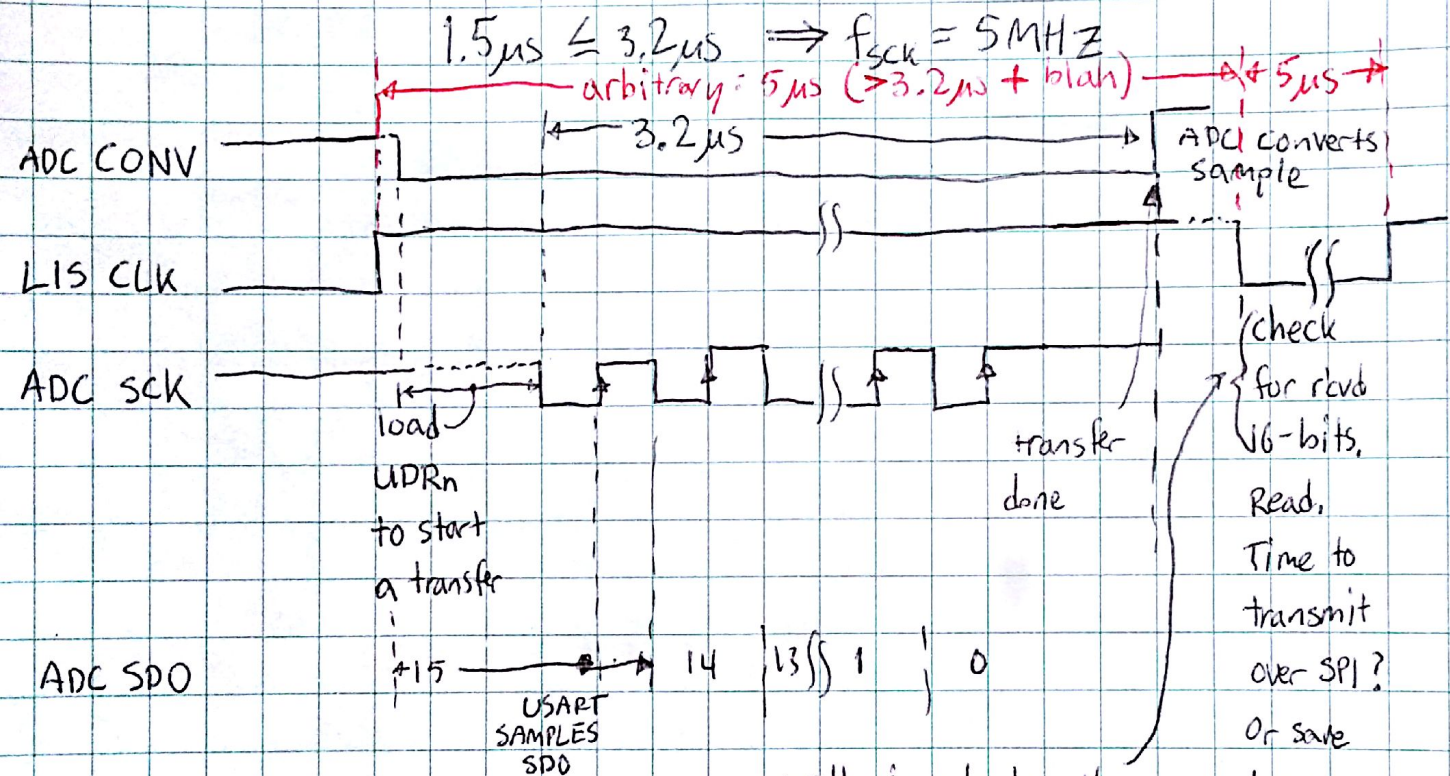 1.5µs ≤ 3.2µs ⇒ fSCK = 5MHz
arbitrary: 5µs (>3.2µs + blah)
5µs
3.2µs
ADC CONV
ADC converts
sample
LIS CLK
ADC SCK
load
UDRn
to start
a transfer
transfer
done
check
for rcvd
16-bits.
Read.
Time to
transmit
over SPI?
Or save
ADC SDO
15
14
13
1
0
USART
SAMPLES
SDO